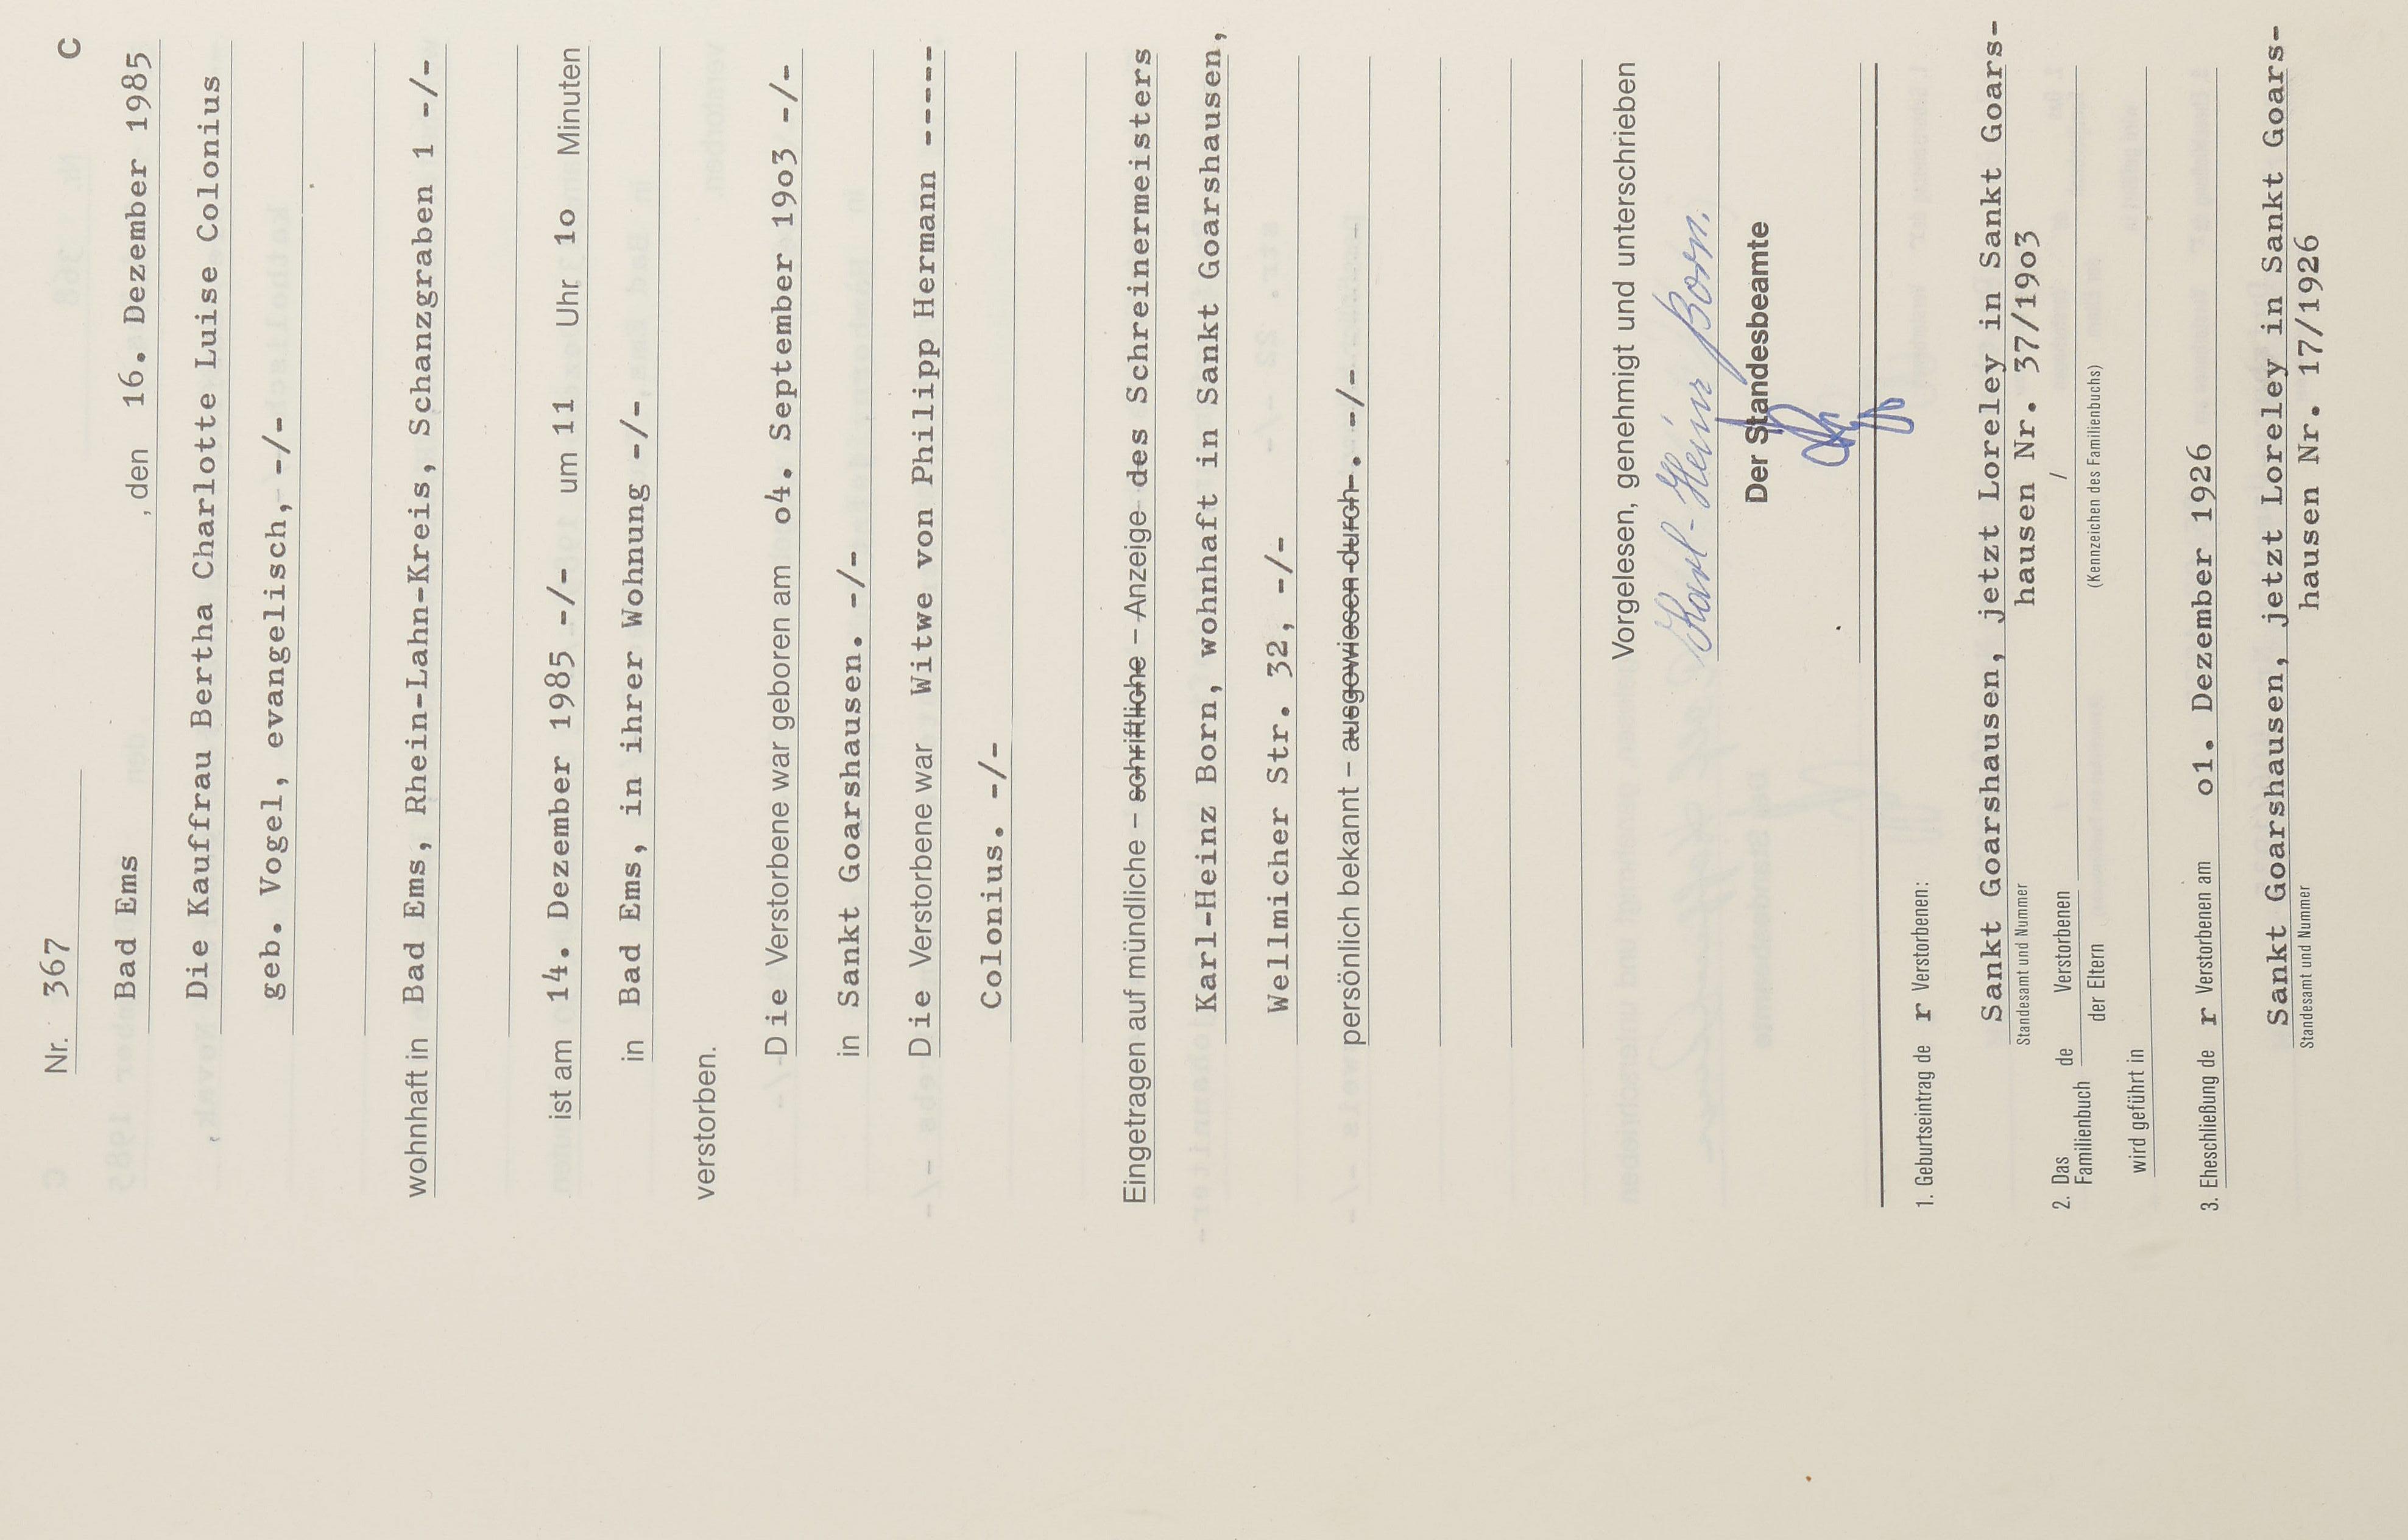 Nr. 367 C
Bad Ems , den 16. Dezember 1985
Die Kauffrau Bertha Charlotte Luise Colonius
geb. Vogel, evangelisch, -/-
wohnhaft in Bad Ems, Rhein-Lahn-Kreis, Schanzgraben 1 -/-
ist am 14. Dezember 1985 -/- um 11 Uhr 1o Minuten
in Bad Ems, in ihrer Wohnung -/-
verstorben.
Die Verstorbene war geboren am o4. September 19o3 -/-
in Sankt Goarshausen. -/-
Die Verstorbene war Witwe von Philipp Hermann -----
Colonius. -/-
Eingetragen auf mündliche – schriftliche – Anzeige des Schreinermeisters
Karl-Heinz Born, wohnhaft in Sankt Goarshausen,
Wellmicher Str. 32, -/-
persönlich bekannt – ausgewiesen durch . -/-
Vorgelesen, genehmigt und unterschrieben
Karl-Heinz Born.
Der Standesbeamte
1. Geburtseintrag de r Verstorbenen:
Sankt Goarshausen, jetzt Loreley in Sankt Goars-
Standesamt und Nummer hausen Nr. 37/19o3
2. Das Familienbuch de Verstorbenen /
der Eltern (Kennzeichen des Familienbuchs)
wird geführt in
3. Eheschließung de r Verstorbenen am o1. Dezember 1926
Sankt Goarshausen, jetzt Loreley in Sankt Goars-
Standesamt und Nummer hausen Nr. 17/1926